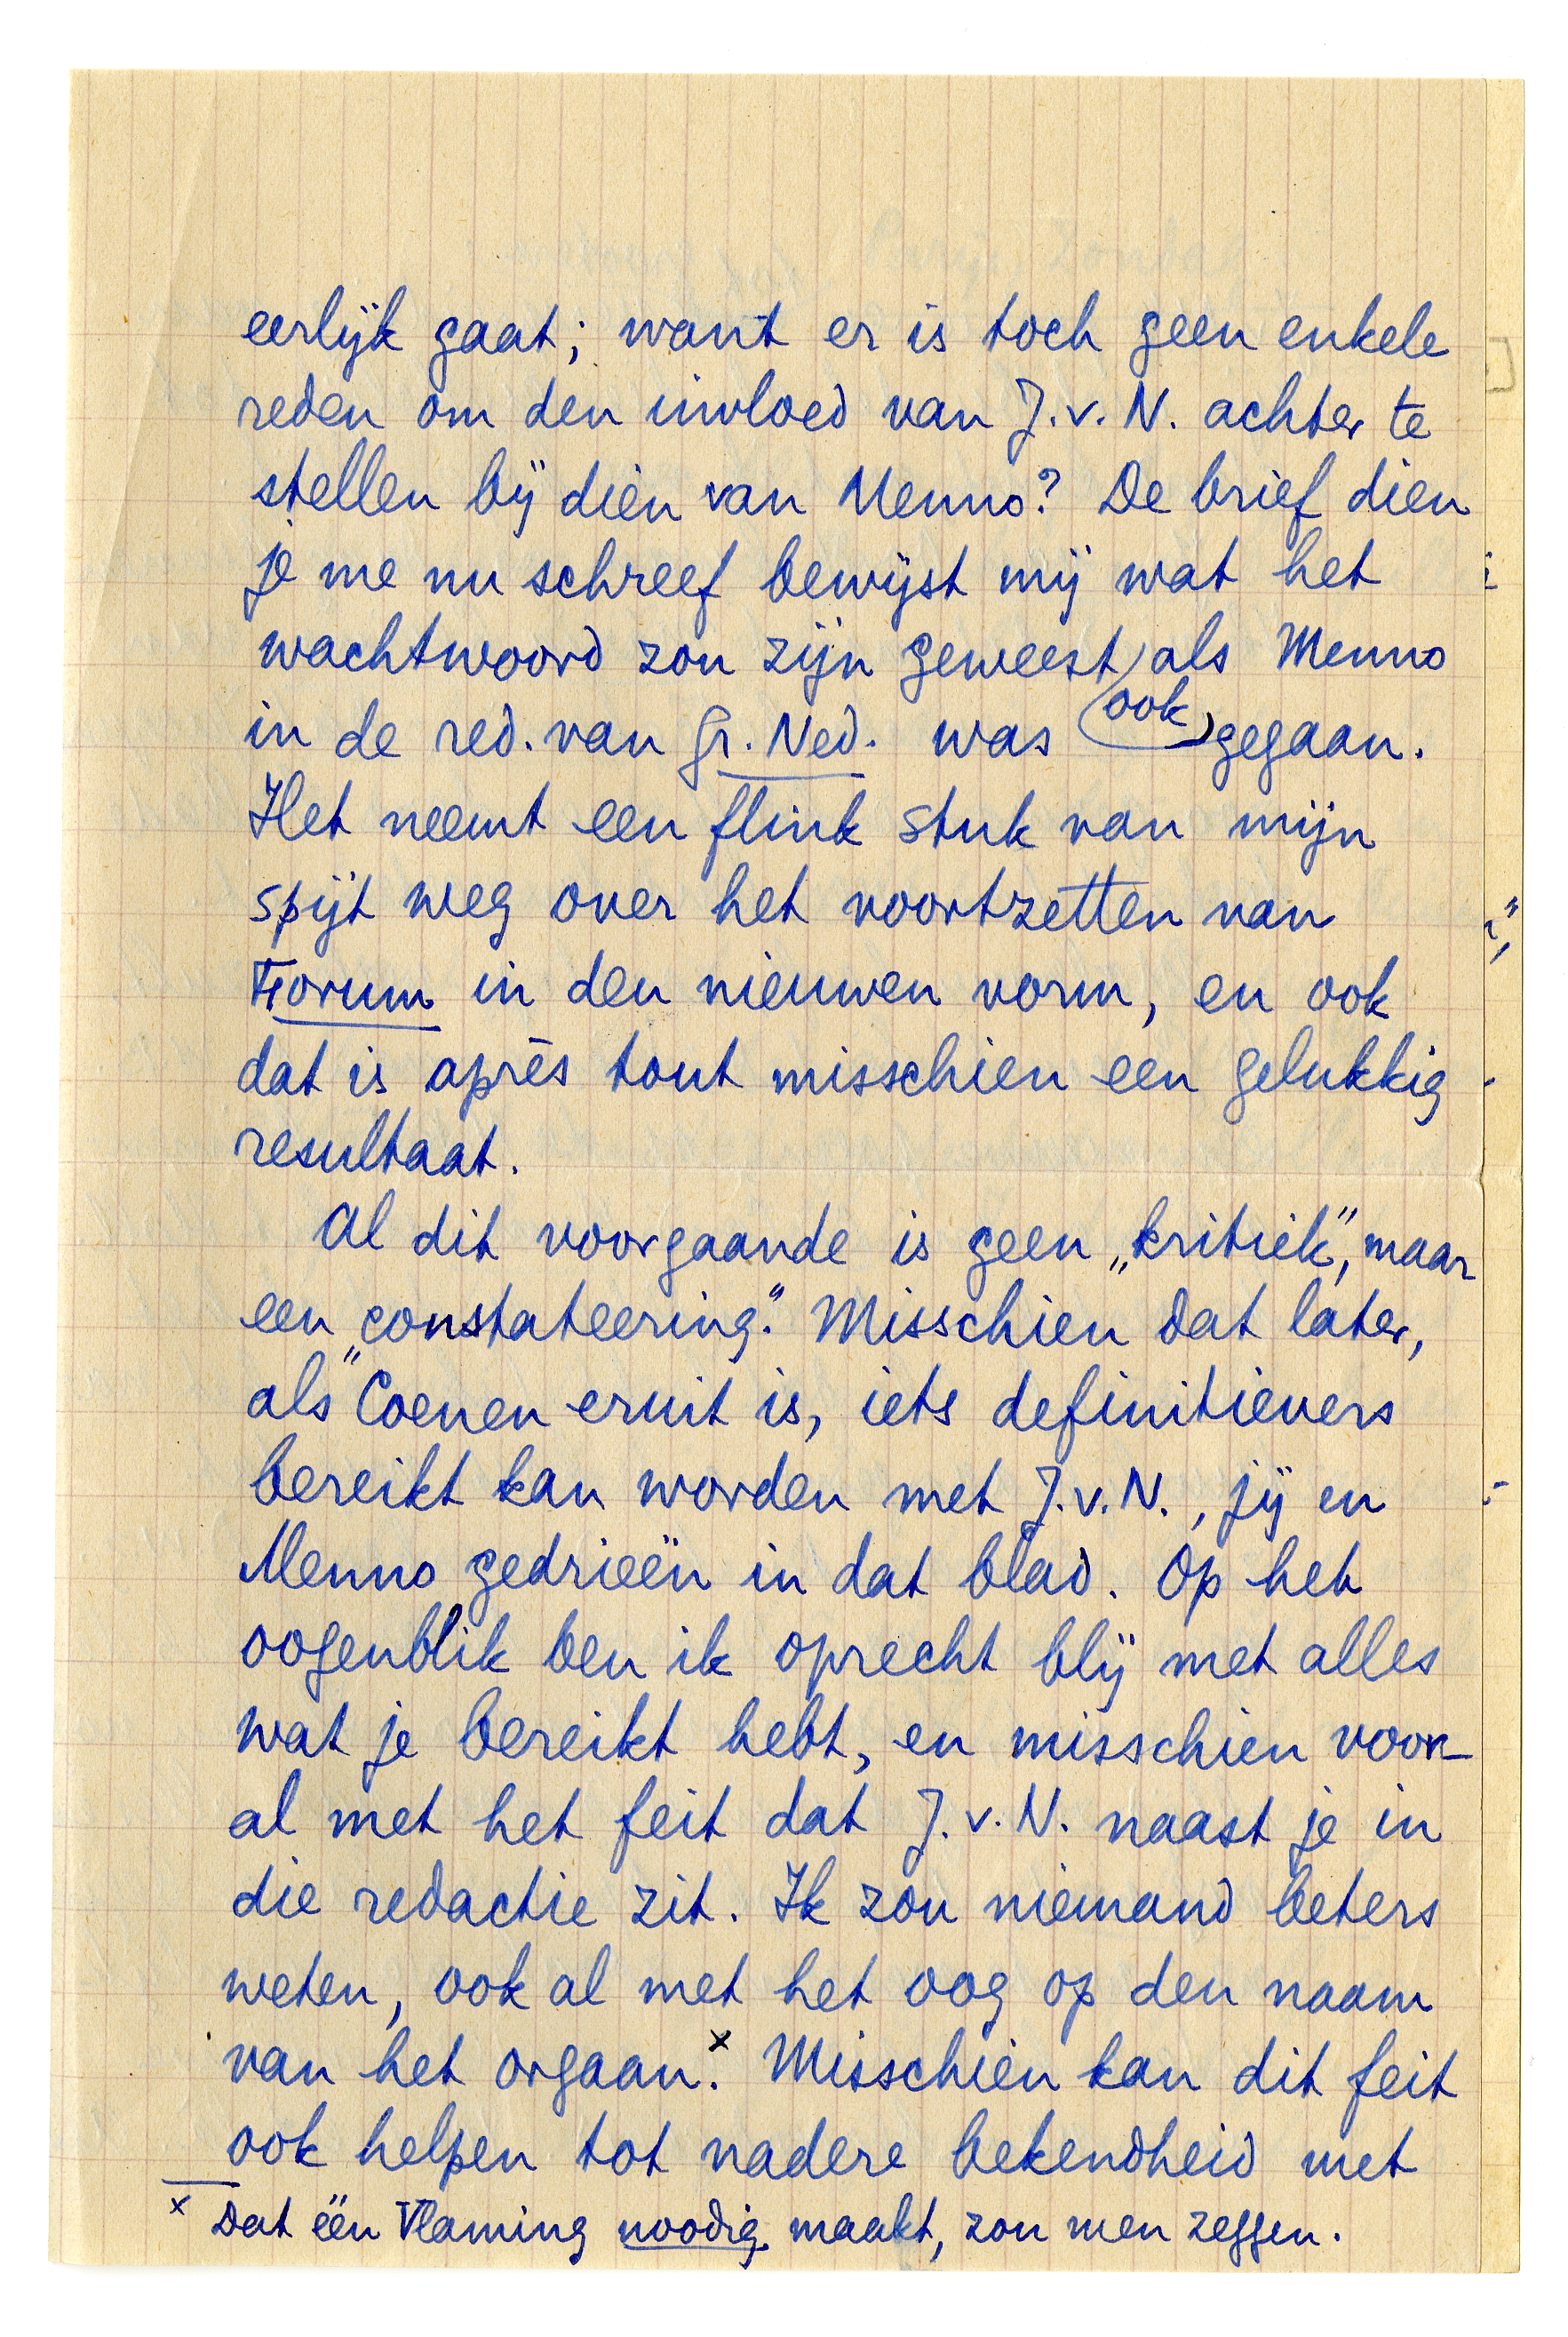 eerlijk gaat; want er is toch geen enkele
reden om den invloed van J.v.N. achter te
stellen bij dien van Menno? De brief dien
je me nu schreef bewijst mij wat het
wachtwoord zou zijn geweest als Menno
in de red. van Gr. Ned. was ook gegaan.
Het neemt een flink stuk van mijn
spijt weg over het voortzetten van
Forum in den nieuwen vorm, en ook
dat is après tout misschien een gelukkig
resultaat.
Al dit voorgaande is geen „kritiek”, maar
een „constateering.” Misschien dat later,
als Coenen eruit is, iets definitievers
bereikt kan worden met J.v.N., jij en
Menno gedrieën in dat blad. Op het
oogenblik ben ik oprecht blij met alles
wat je bereikt hebt, en misschien voor-
al met het feit dat J.v.N. naast je in
die redactie zit. Ik zou niemand beters
weten, ook al met het oog op den naam
van het orgaan.x Misschien kan dit feit
ook helpen tot nadere bekendheid met
x Dat één Vlaming noodig maakt, zou men zeggen.